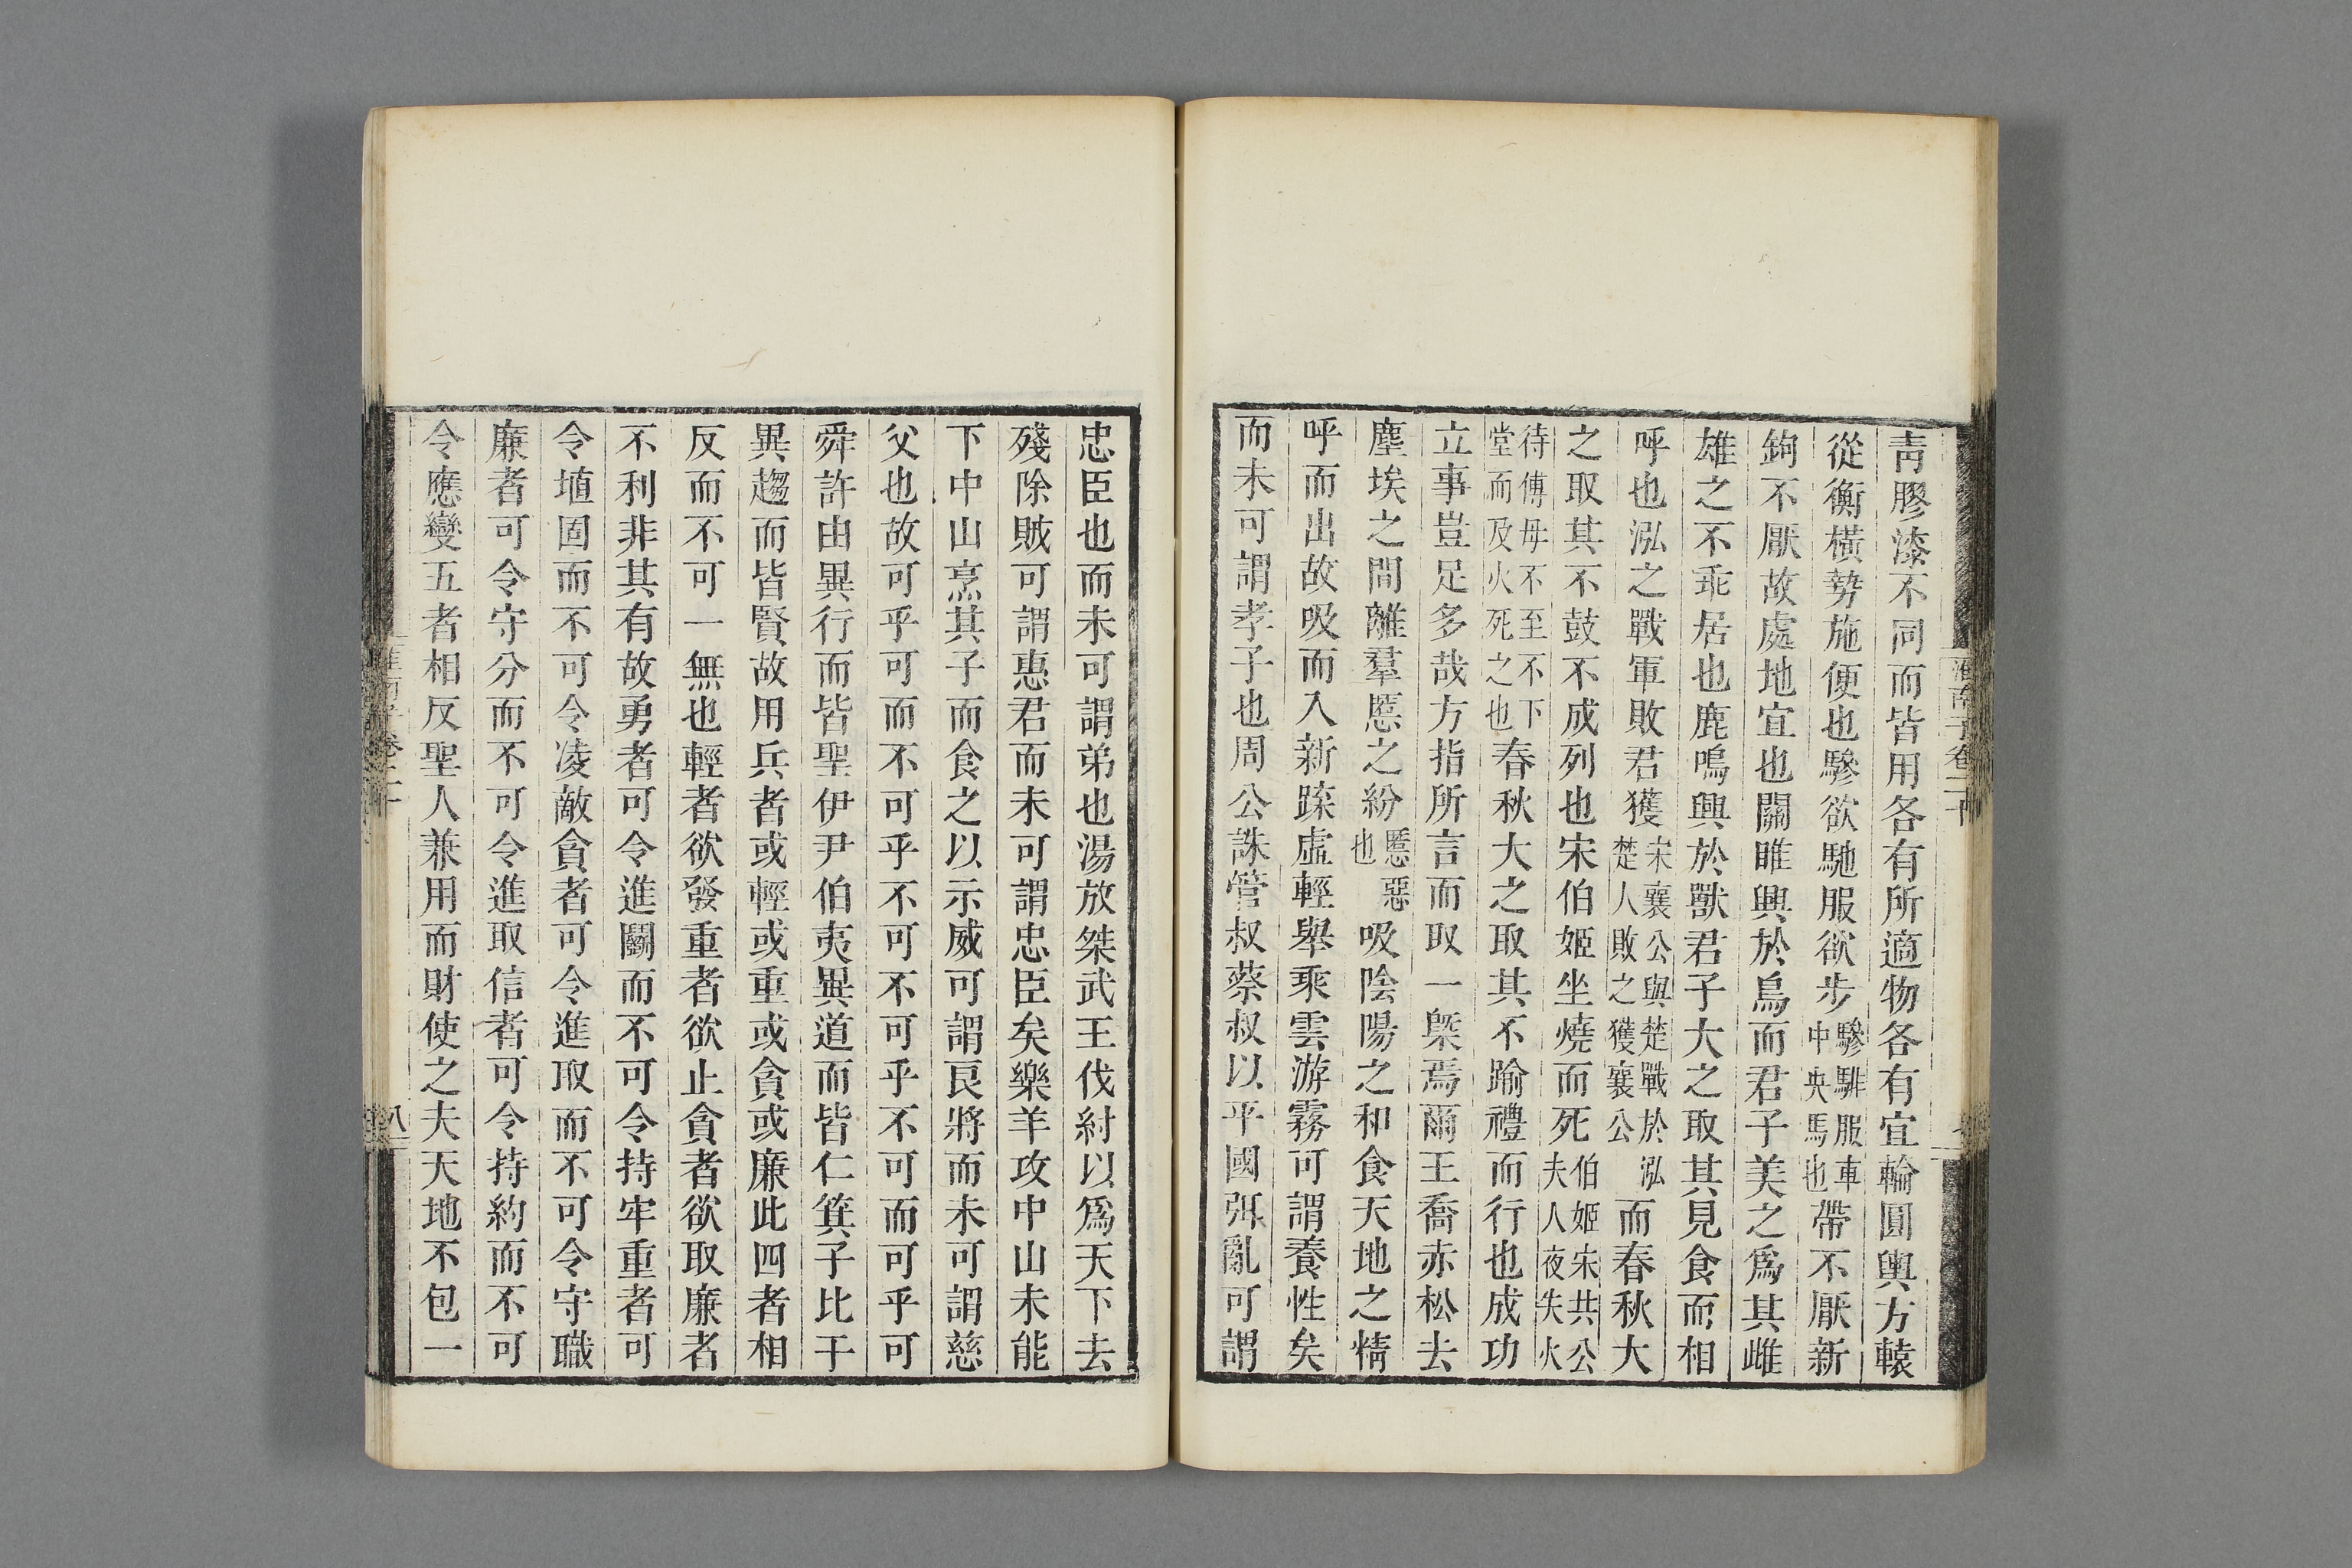 青膠漆不同而皆用各有所適物各有宜輪圓輿方轅
從衡橫勢施便也驂欲馳服欲步驂騑服車中央馬也帶不厭新
鉤不厭故處地宜也關雎興於鳥而君子美之爲其雌
雄之不乖居也鹿鳴興於獸君子大之取其見食而相
呼也泓之戰軍敗君獲宋襄公與楚戰於泓楚人敗之獲襄公而春秋大
之取其不鼓不成列也宋伯姬坐燒而死伯姬宋共公夫人夜失火
待傅母不至不下堂而及火死之也春秋大之取其不踰禮而行也成功
立事豈足多哉方指所言而取一槩焉爾王喬赤松去
塵埃之間離羣慝之紛慝惡也吸陰陽之和食天地之情
呼而出故吸而入新蹂虛輕舉乘雲游霧可謂養性矣
而未可謂孝子也周公誅管叔蔡叔以平國弭亂可謂
忠臣也而未可謂弟也湯放桀武王伐紂以爲天下去
殘除賊可謂惠君而未可謂忠臣矣樂羊攻中山未能
下中山烹其子而食之以示威可謂良將而未可謂慈
父也故可乎可而不可乎不可不可乎不可而可乎可
舜許由異行而皆聖伊尹伯夷異道而皆仁箕子比干
異趨而皆賢故用兵者或輕或重或貪或廉此四者相
反而不可一無也輕者欲發重者欲止貪者欲取廉者
不利非其有故勇者可令進鬭而不可令持牢重者可
令埴固而不可令凌敵貪者可令進取而不可令守職
廉者可令守分而不可令進取信者可令持約而不可
令應變五者相反聖人兼用而財使之夫天地不包一
淮南子卷二十
八